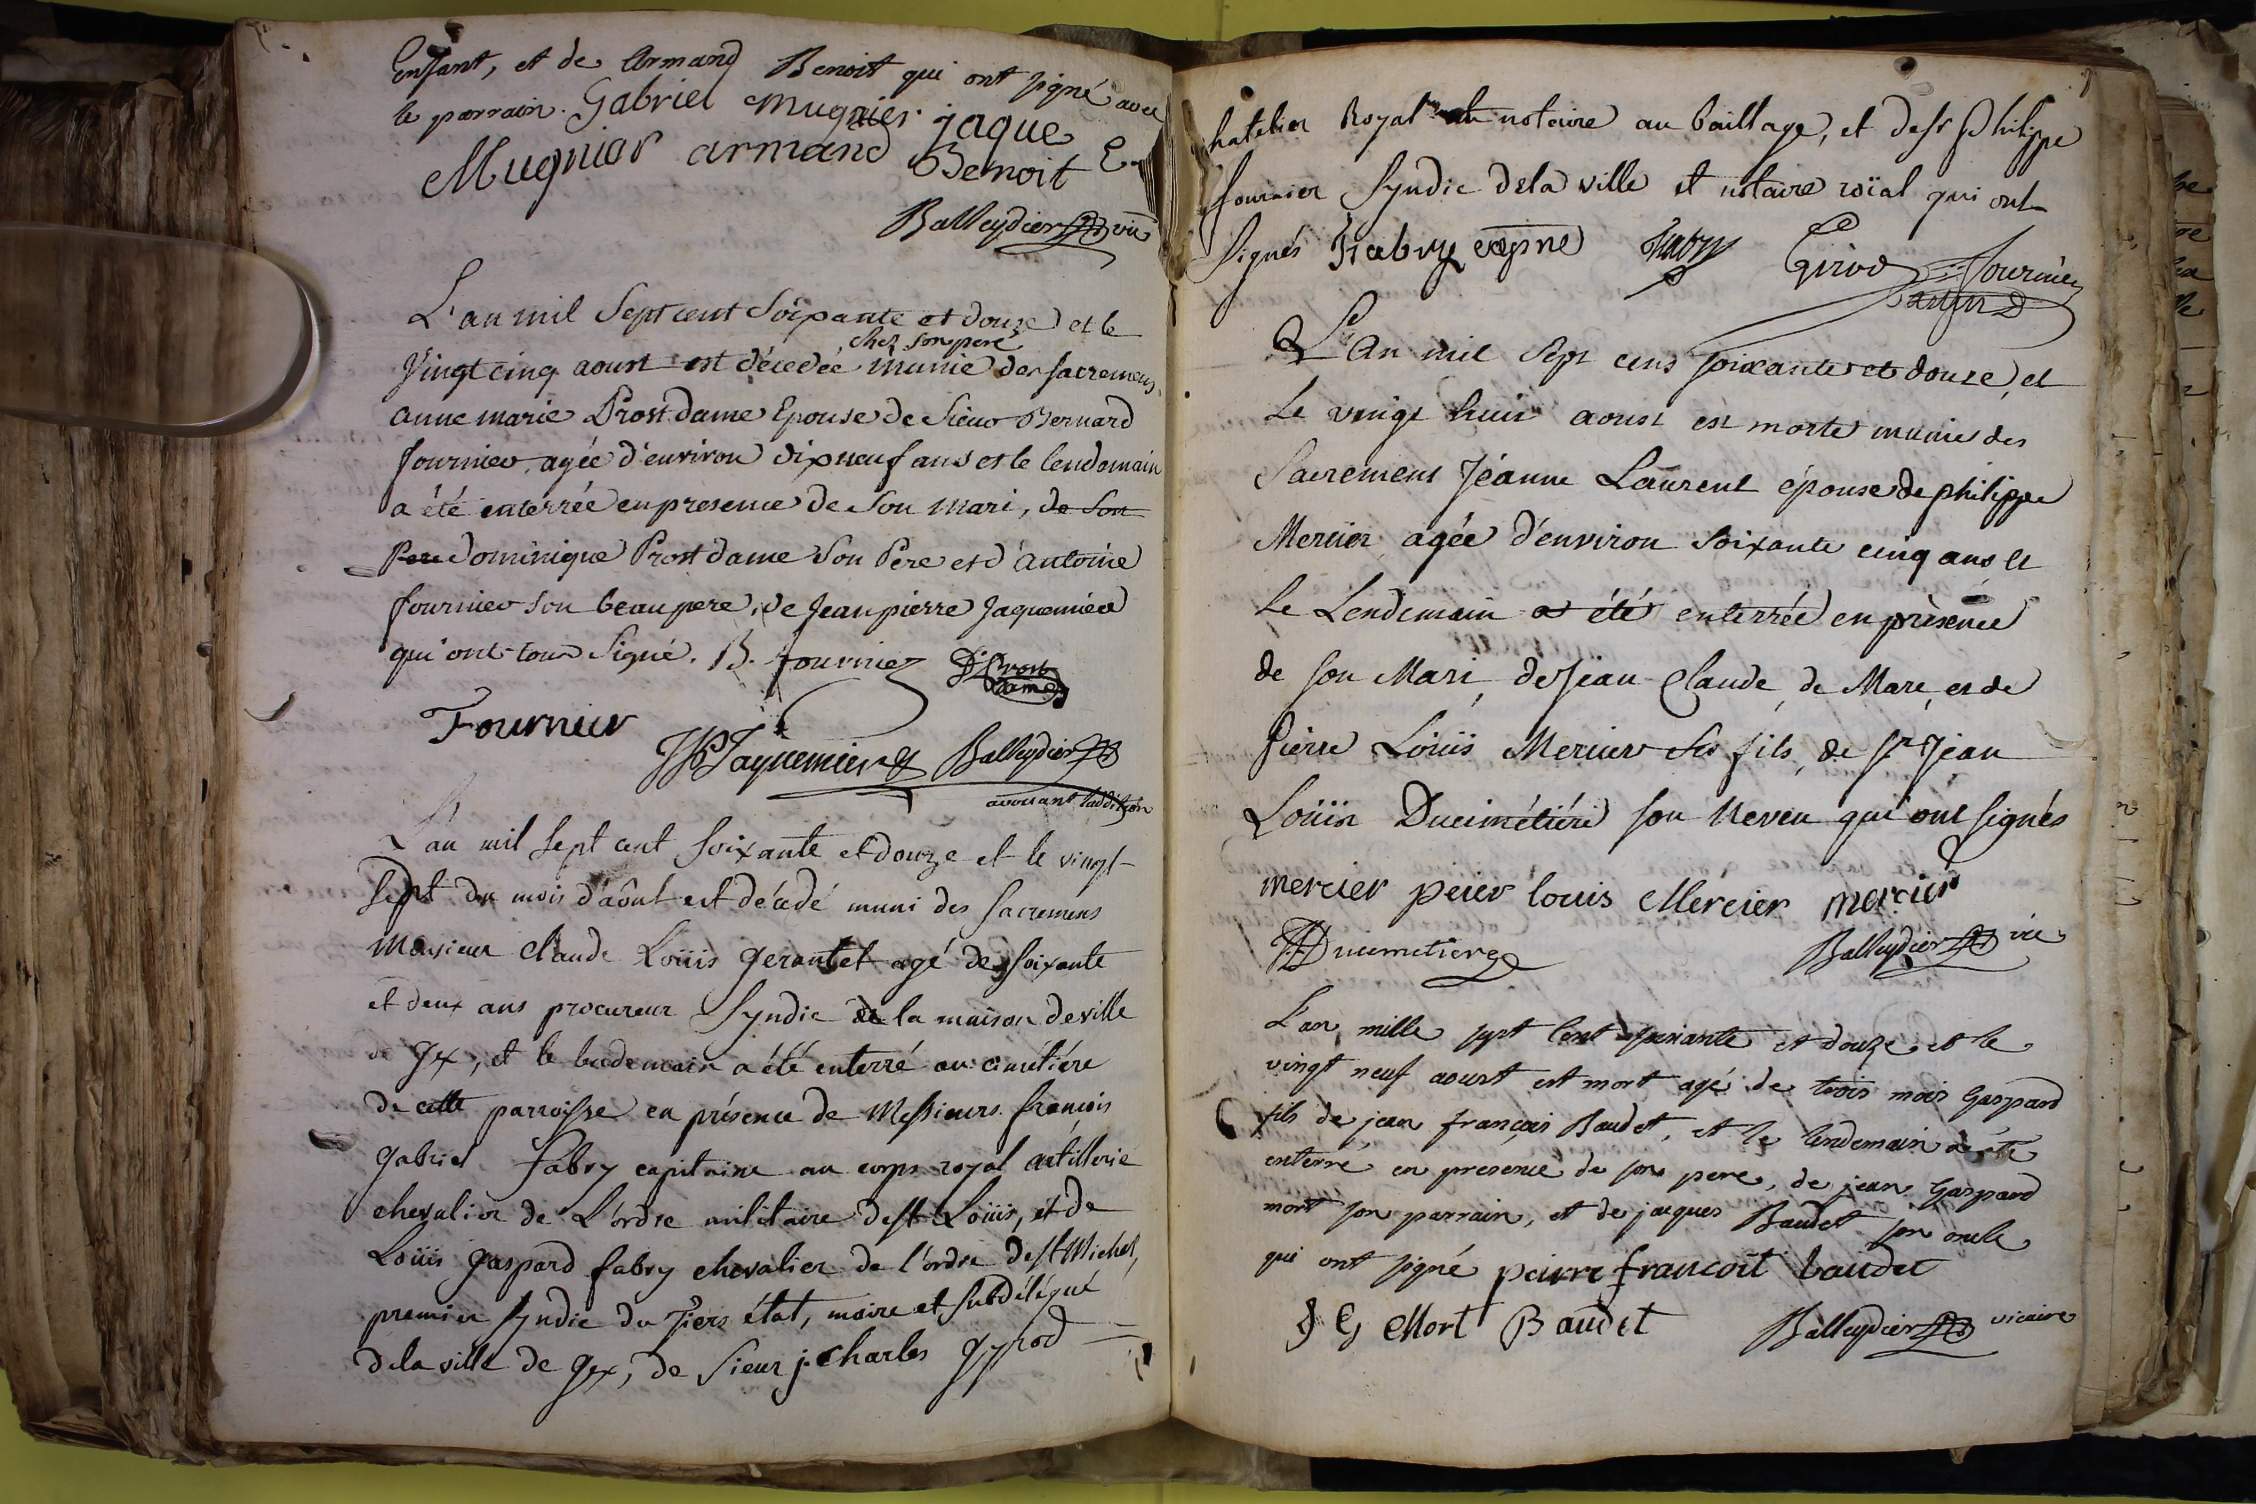 Enfant, et de Armand Benoit qui ont signé avec
le parrain. Gabriel mugnier jaque
Mugnier armand Benoit
Balleydier vic
L'an mil Sept cent soixante et douze et le
chez son pere
Vingt cinq aoust est décedée munie des sacremens,
anne marie Prost dame Epouse de Sieur Bernard
fournier, agée d'environ dix neuf ans et le lendemain
a été enterrée en presence de Son mari, de son
Pere dominique Prost dame Son Pere et d'antoine
fournier son beau pere, de Jean pierre Jaquemier
qui ont tous Signé. B. fournier D. Prost
Dame
Fournier
JP Jaquemier Balleydier
avouant l'addition
L'an mil sept cent soixante et douze et le vingt
sept du mois d'août est décédé muni des sacremens
Monsieur Claude Loüis gerantet agé de soixante
et deux ans procureur Syndic de la maison de ville
de Gex, et le lendemain a été enterré au cimétiére
de cette parroisse en présence de Messieurs françois
gabriel fabry capitaine au corps royal artillerie
chevalier de L'ordre militaire de st Loüis, et de
Loüis gaspard fabry chevalier de l'ordre de st Michel,
premier syndic du Tiers état, maire et subdélégué
de la ville de Gex, de Sieur j. Charles gyrod
chatelier Royal notaire au bailliage, et de sr Philippe
fournier Syndic de la ville et notaire roïal qui ont
Signés Fabry fabry Girod fournier
L'An mil Sept cens soixante et douze, et
Le vingt huit aoust est morte munie des
Sacremens Jéanne Laurent épouse de philippe
Mercier agée d'environ Soixante cinq ans, et
Le Lendemain a été enterrée en présence
de son Mari, de Jéan Claude, de Marc, et de
Pierre Loüis Mercier Ses fils, de sr Jéan
Loüis Ducimétiére son Neveu qui ont signés
mercier peier louis Mercier mercier
Ducimetiere Balleydier vic
L'an mille sept Cent soixante et douze et le
vingt neuf aoust est mort agé de trois mois Gaspard
fils de jean françois Baudet, et le lendemain a été
enterré en presence de son pere, de jean Gaspard
mort son parrain, et de jacques Baudet son oncle
qui ont signé peirre francoit baudet
J G Mort Baudet Balleydier vicaire